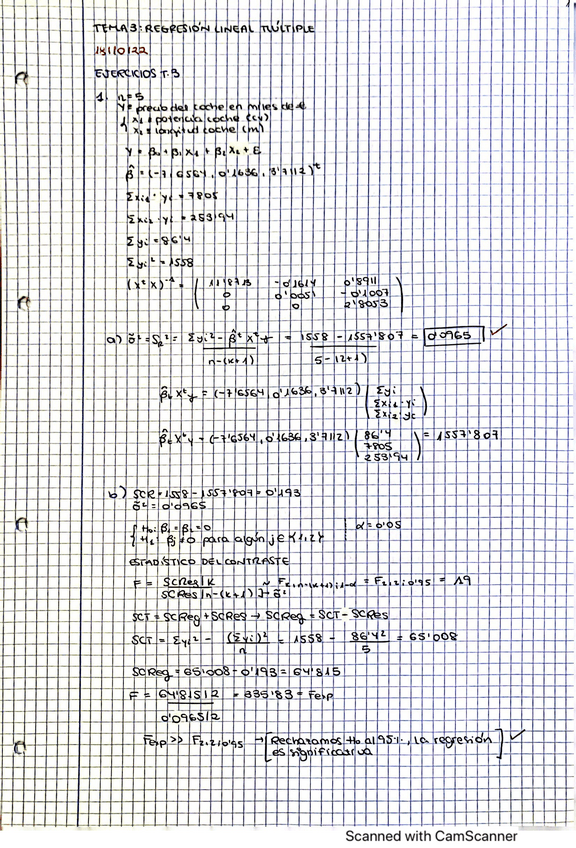 TEMA 3: REGRESIÓN LINEAL MÚLTIPLE
18/10/22
EJERCICIOS T.3
1. n=5
Y = precio del coche en miles de €
{ x₁ = potencia coche (cv)
x₂ = longitud coche (m)
Y = β₀ + β₁X₁ + β₂X₂ + ε
β̂ = (-7'6564, 0'1636, 3'7112)ᵗ
Σxi₁·yi = 7805
Σxi₂·yi = 253'94
Σyi = 86'4
Σyi² = 1558
(XᵗX)⁻¹ = ( 11'8713 -0'1614 0'8911
0 0'0051 -0'1007
0 0 2'8053 )
a) σ̃² = S²R = Σyi² - β̂ᵗXᵗy / n-(k+1) = 1558 - 1557'807 / 5-(2+1) = 0'0965 ✓
β̂ᵗXᵗy = (-7'6564, 0'1636, 3'7112) ( Σyi
Σxi₁·yi
Σxi₂·yi )
β̂ᵗXᵗy = (-7'6564, 0'1636, 3'7112) ( 86'4
7805
253'94 ) = 1557'807
b) SCR = 1558 - 1557'807 = 0'193
σ̃² = 0'0965
{ H₀: β₁ = β₂ = 0 | α = 0'05
H₁: βj ≠ 0 para algún j ∈ {1,2}
ESTADÍSTICO DEL CONTRASTE
F = SCReg/k / SCRes/n-(k+1) }→σ̃² ~ F₂,n-(k+1);1-α = F₂,2;0'95 = 19
SCT = SCReg + SCRes → SCReg = SCT - SCRes
SCT = Σyi² - (Σyi)² / n = 1558 - 86'4² / 5 = 65'008
SCReg = 65'008 - 0'193 = 64'815
F = 64'815/2 / 0'0965/2 = 335'83 = Fexp
Fexp >> F₂,2;0'95 → [Rechazamos H₀ al 95%, la regresión
es significativa] ✓
Scanned with CamScanner